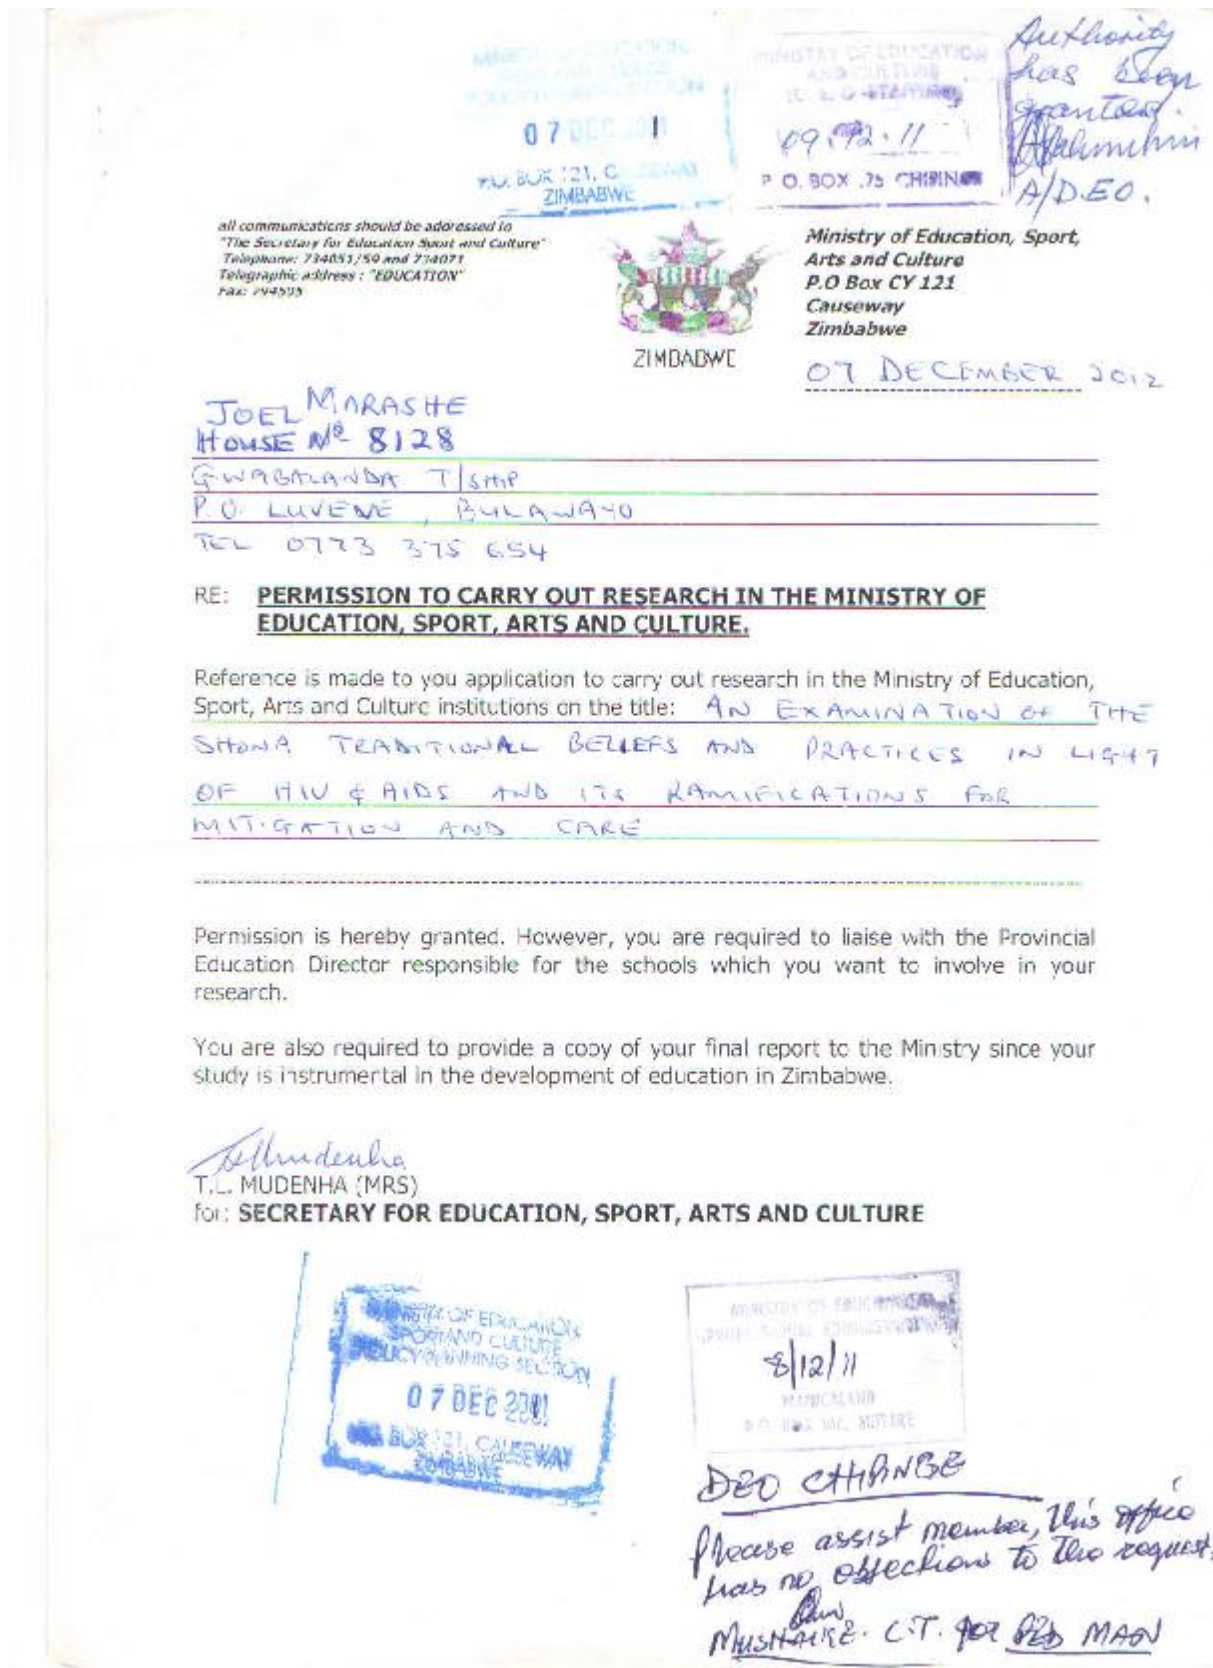 MINISTRY OF EDUCATION
07 DEC
P.O. BOX 121, CAUSEWAY
ZIMBABWE
MINISTRY OF EDUCATION
AND CULTURE
09.12.11
P O. BOX .75 CHIPINGE
Authority
has been
granted.
A/D.E.O.
all communications should be addressed to
"The Secretary for Education Sport and Culture"
Telephone: 734051/59 and 734071
Telegraphic address : "EDUCATION"
Fax: 794505
Ministry of Education, Sport,
Arts and Culture
P.O Box CY 121
Causeway
Zimbabwe
ZIMBABWE
07 DECEMBER 2012
JOEL MARASHE
HOUSE No 8128
GWABALANDA T/SHIP
P.O. LUVEVE, BULAWAYO
TEL 0773 375 654
RE: PERMISSION TO CARRY OUT RESEARCH IN THE MINISTRY OF
EDUCATION, SPORT, ARTS AND CULTURE.
Reference is made to you application to carry out research in the Ministry of Education,
Sport, Arts and Culture institutions on the title: AN EXAMINATION OF THE
SHONA TRADITIONAL BELIEFS AND PRACTICES IN LIGHT
OF HIV & AIDS AND ITS RAMIFICATIONS FOR
MITIGATION AND CARE
Permission is hereby granted. However, you are required to liaise with the Provincial
Education Director responsible for the schools which you want to involve in your
research.
You are also required to provide a copy of your final report to the Ministry since your
study is instrumental in the development of education in Zimbabwe.
T.L. MUDENHA (MRS)
for: SECRETARY FOR EDUCATION, SPORT, ARTS AND CULTURE
MINISTRY OF EDUCATION
SPORT AND CULTURE
POLICY PLANNING SECTION
07 DEC
BOX 121, CAUSEWAY
ZIMBABWE
MINISTRY OF EDUCATION
8/12/11
MANICALAND
P.O. BOX MUTARE
DEO CHIPINGE
Please assist member, this office
has no objections to the request.
C.T. for PED MAN